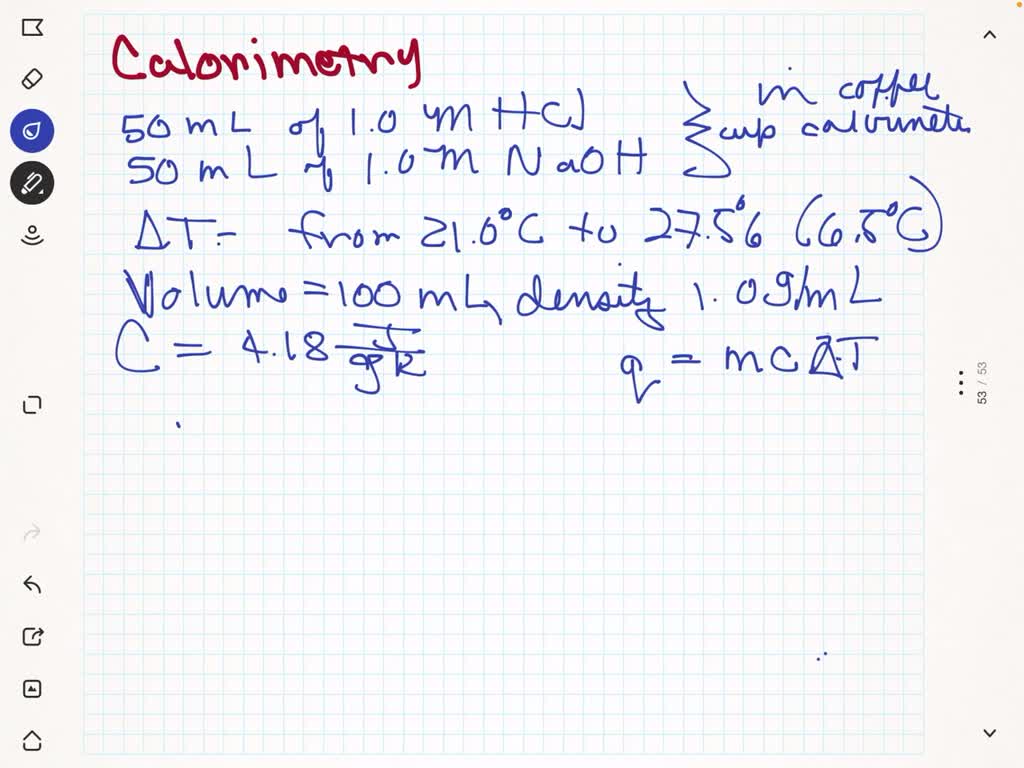 Calorimetry
50 mL of 1.0 M HCl
50 mL of 1.0 M NaOH
in coffee
cup calorimeter
ΔT = from 21.0°C to 27.5°C (6.5°C)
Volume = 100 mL, density 1.0 g/mL
C = 4.18 J/gK
q = mcΔT
53 / 53